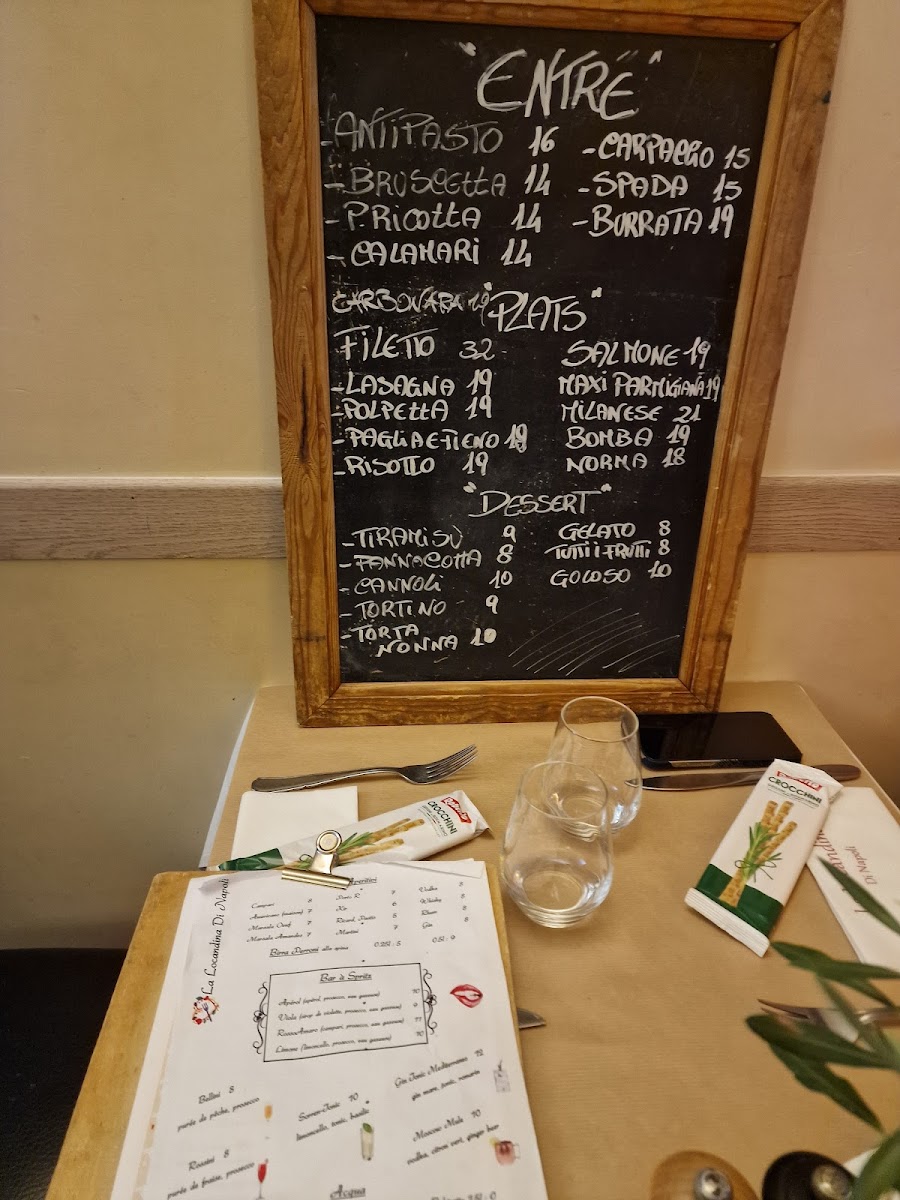 "ENTRÉ"
-ANTIPASTO 16
-BRUSCETTA 14
-P.RICOTTA 14
-CALAMARI 14
-CARPACCIO 15
-SPADA 15
-BURRATA 19
CARBONARA 19
"PLATS"
FILETTO 32
-LASAGNA 19
-POLPETTA 19
-PAGLIA E FIENO 19
-RISOTTO 19
SALMONE 19
MAXI PARMIGIANA 19
MILANESE 21
BOMBA 19
NORMA 18
"DESSERT"
-TIRAMISÙ 9
-PANNACOTTA 8
-CANNOLI 10
-TORTINO 9
-TORTA
NONNA 10
GELATO 8
TUTTI I FRUTTI 8
GOLOSO 10
CROCCHINI
CROCCHINI
Di Napoli
La Locandina Di Napoli
Aperitini
Campari 8
Americano (maison) 7
Marsala Oeuf 7
Marsala Amandes 7
7
Kir 6
Ricard, Pastis 5
Martini 7
Vodka 8
Whisky 8
Rhum 8
Gin 8
Birra Peroni alla spina 0.25l : 5 0.5l : 9
Bar à Spritz
Apérol (apérol, prosecco, eau gazeuse) 10
Viola (sirop de violette, prosecco, eau gazeuse) 9
RossoAmaro (campari, prosecco, eau gazeuse) 11
Limone (limoncello, prosecco, eau gazeuse) 10
Bellini 8
purée de pêche, prosecco
Sorren-Tonic 10
limoncello, tonic, basilic
Gin Tonic Mediterraneo 12
gin mare, tonic, romarin
Rossini 8
purée de fraise, prosecco
Moscow Mule 10
vodka, citron vert, ginger beer
Acqua